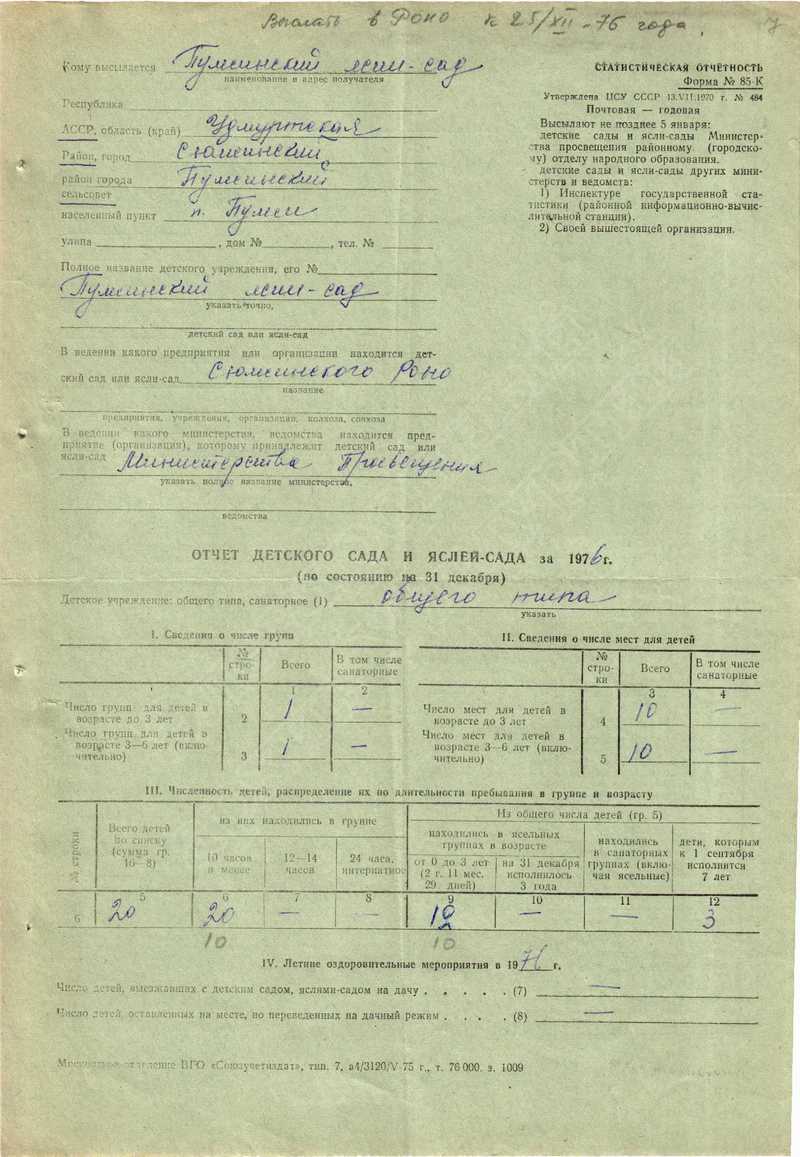 Выслать в Роно к 25/XII-76 года.
Кому высылается Пумсинский ясли-сад
наименование и адрес получателя
Республика
АССР, область (край) Удмуртская
Район, город Сюмсинский
район города Пумсинский
сельсовет
населенный пункт п. Пумси
улица , дом № , тел. №
Полное название детского учреждения, его №
Пумсинский ясли-сад
указать точно,
детский сад или ясли-сад
В ведении какого предприятия или организации находится дет-
ский сад или ясли-сад Сюмсинского Роно
название
предприятия, учреждения, организации, колхоза, совхоза
В ведении какого министерства, ведомства находится пред-
приятие (организация), которому принадлежит детский сад или
ясли-сад Министерства Просвещения
указать полное название министерства,
ведомства
СТАТИСТИЧЕСКАЯ ОТЧЁТНОСТЬ
Форма № 85-К
Утверждена ЦСУ СССР 13.VII.1970 г. № 484
Почтовая — годовая
Высылают не позднее 5 января:
детские сады и ясли-сады Министер-
ства просвещения районному (городско-
му) отделу народного образования.
детские сады и ясли-сады других мини-
стерств и ведомств:
1) Инспектуре государственной ста-
тистики (районной информационно-вычис-
лительной станции).
2) Своей вышестоящей организации.
ОТЧЕТ ДЕТСКОГО САДА И ЯСЛЕЙ-САДА за 1976 г.
(по состоянию на 31 декабря)
Детское учреждение: общего типа, санаторное (1) общего типа
указать
I. Сведения о числе групп
№ стро-ки Всего В том числе санаторные
1 2
Число групп для детей в
возрасте до 3 лет 2 1 —
Число групп для детей в
возрасте 3—6 лет (вклю-
чительно) 3 1 —
II. Сведения о числе мест для детей
№ стро-ки Всего В том числе санаторные
3 4
Число мест для детей в
возрасте до 3 лет 4 10 —
Число мест для детей в
возрасте 3—6 лет (вклю-
чительно) 5 10 —
III. Численность детей, распределение их по длительности пребывания в группе и возрасту
№ строки
Всего детей по списку (сумма гр. 6—8)
из них находились в группе
10 часов и менее
12—14 часов
24 часа, интернатное
Из общего числа детей (гр. 5)
находились в ясельных группах в возрасте
от 0 до 3 лет (2 г. 11 мес. 29 дней)
на 31 декабря исполнилось 3 года
находились в санаторных группах (вклю-чая ясельные)
дети, которым к 1 сентября исполнится 7 лет
5 6 7 8 9 10 11 12
6 20 20 — — 10 — — 3
10 10
IV. Летние оздоровительные мероприятия в 1976 г.
Число детей, выезжавших с детским садом, яслями-садом на дачу . . . . . (7) —
Число детей, оставленных на месте, но переведенных на дачный режим . . . . (8) —
Московское отделение ВГО «Союзучетиздат», тип. 7, а4/3120/V-75 г., т. 76 000. з. 1009